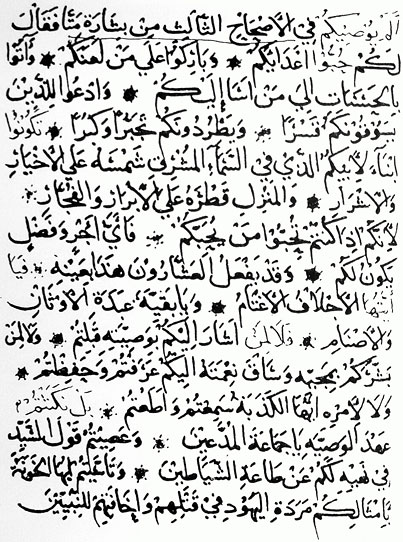 ألم يوصيكم في الاصحاح الثالث من بشارة متا فقال
لكم حبوا اعدائكم * وباركوا علي من لعنكم * وأتوا
بالحسنات الي من اسا إليكم * وادعوا للذين
يسوقونكم قسرًا * ويطردونكم تجبرًا وكبرًا * تكونوا
ابناء لابيكم الذي في السماء المشرق شمسه علي الاخيار
والاشرار * والمنزل قطره علي الابرار والفجار
لانكم اذا كنتم تحبوا من يحبكم * فأي اجر وفضل
يكون لكم * وقد يفعل العشارون هذا بعينه * فيا
أيتها الأخلاف الاغتام * ويا بقية عبدة الأوثان
والأصنام * فلا لمن اشار إليكم بوصيته قبلتم * ولا لمن
بشركم بمجيه وساق نعمته اليكم عرفتم وحفظتم *
ولا لامره ايتها الكذبة سمعتم واطعتم * بل نكثتم
عهد الوصية يا جماعة المدعين * وعصيتم قول السيد
في نهيه لكم عن طاعة الشياطين * وتأسيتم ايها الخونة
بامثالكم مردة اليهود في قتلهم وإخافتهم للنبيين